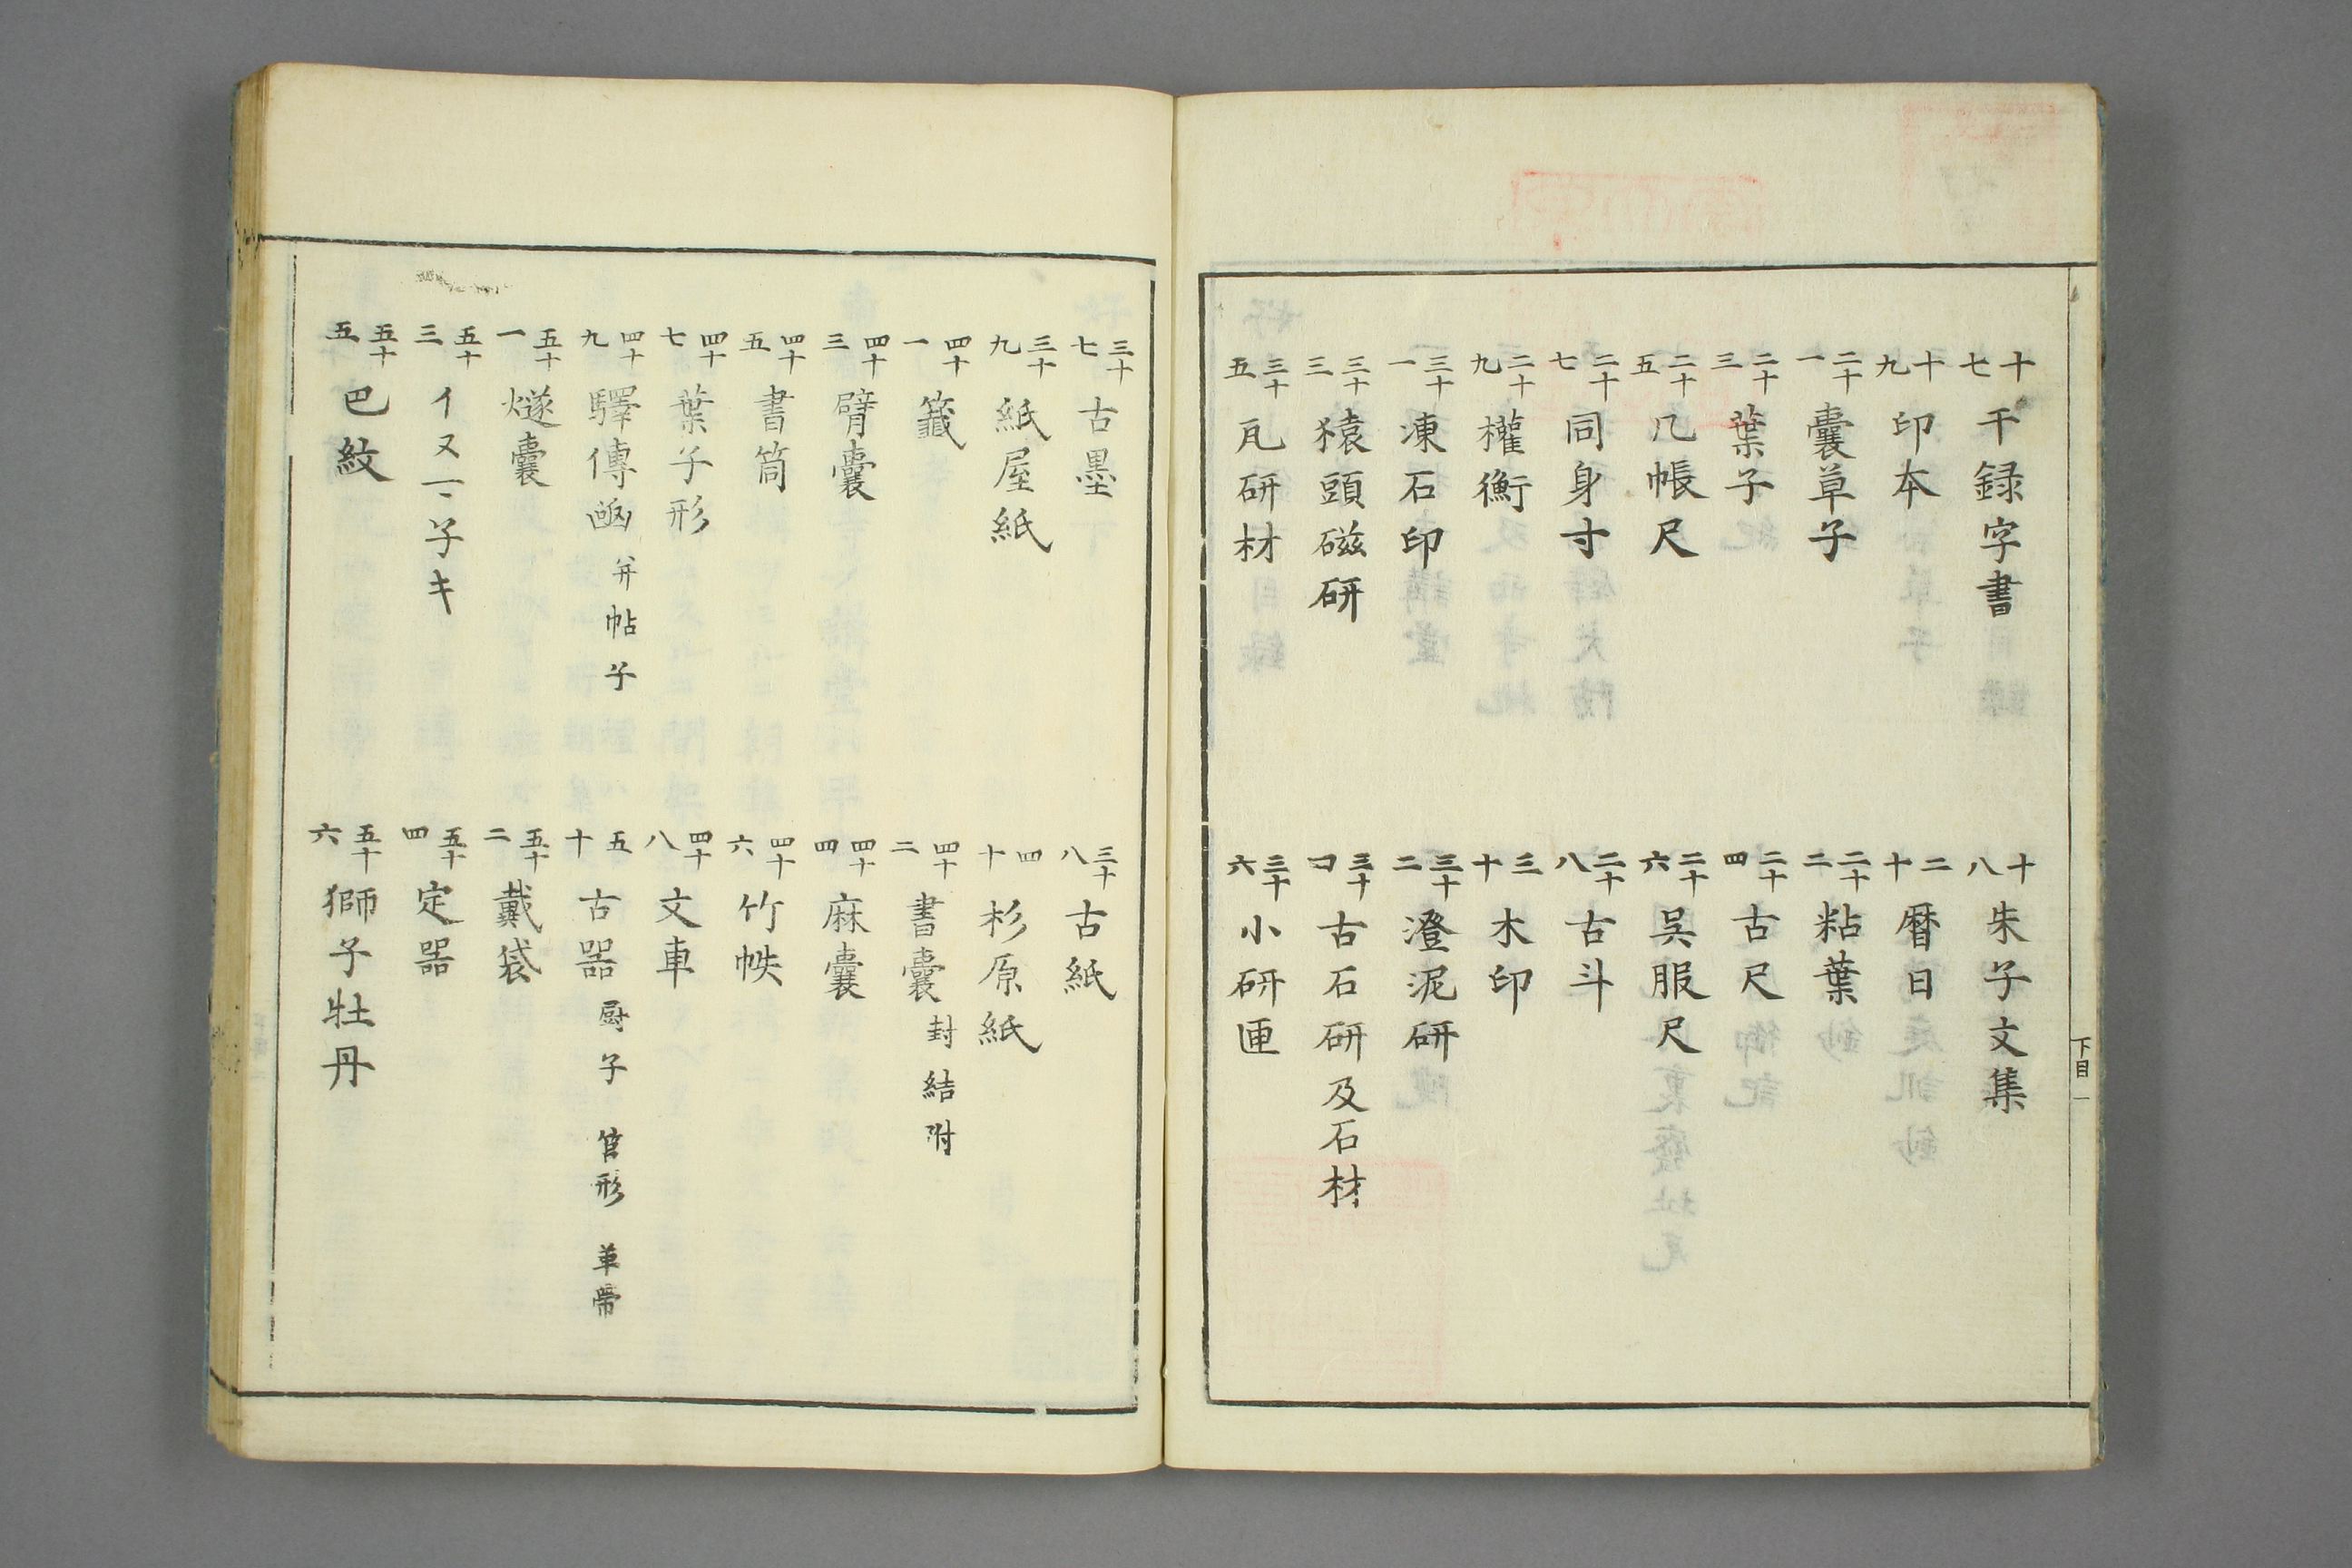 十七 干録字書
十八 朱子文集
十九 印本
二十 暦日
二十一 囊草子
二十二 粘葉
二十三 葉子
二十四 古尺
二十五 几帳尺
二十六 吳服尺
二十七 同身寸
二十八 古斗
二十九 權衡
三十 木印
三十一 凍石印
三十二 澄泥研
三十三 猿頭磁研
三十四 古石研及石材
三十五 瓦研材
三十六 小研匣
下目 一
三十七 古墨
三十八 古紙
三十九 紙屋紙
四十 杉原紙
四十一 籤
四十二 書囊 封結附
四十三 臂囊
四十四 麻囊
四十五 書筒
四十六 竹帙
四十七 葉子形
四十八 文車
四十九 驛傳凾 并帖子
五十 古噐 厨子 官形 革帶
五十一 燧囊
五十二 戴袋
五十三 イヌ 子キ
五十四 定噐
五十五 巴紋
五十六 獅子牡丹